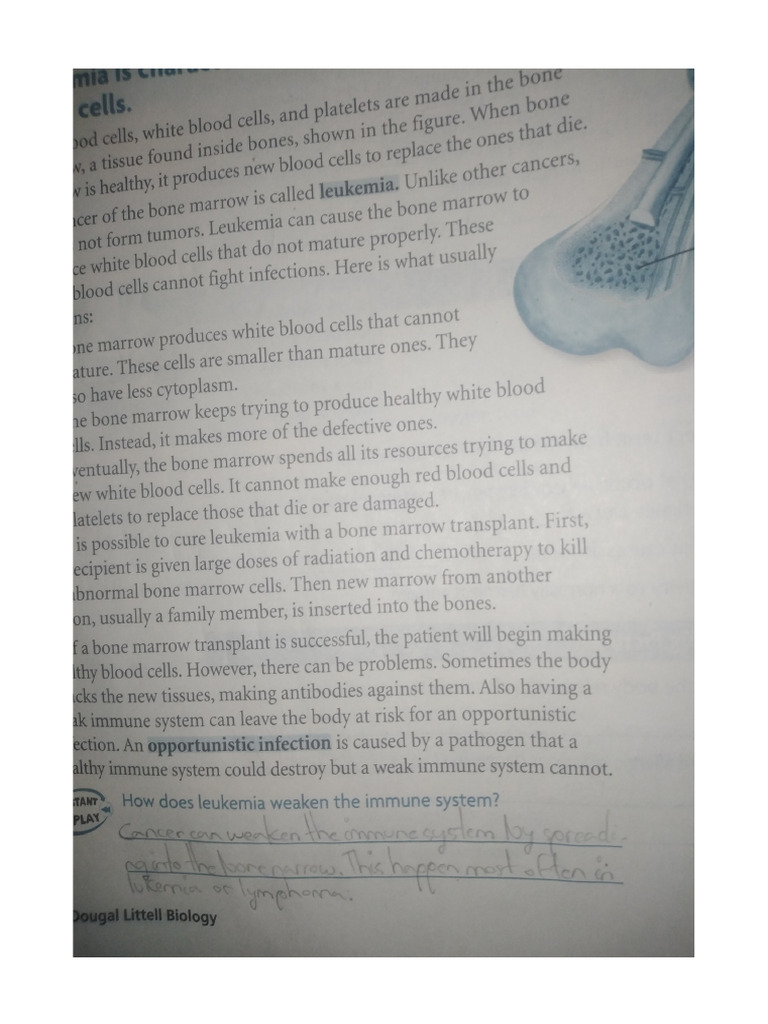 mia is charac
cells.
ood cells, white blood cells, and platelets are made in the bone
w, a tissue found inside bones, shown in the figure. When bone
w is healthy, it produces new blood cells to replace the ones that die.
ncer of the bone marrow is called leukemia. Unlike other cancers,
not form tumors. Leukemia can cause the bone marrow to
ce white blood cells that do not mature properly. These
blood cells cannot fight infections. Here is what usually
ns:
one marrow produces white blood cells that cannot
ature. These cells are smaller than mature ones. They
so have less cytoplasm.
he bone marrow keeps trying to produce healthy white blood
lls. Instead, it makes more of the defective ones.
ventually, the bone marrow spends all its resources trying to make
ew white blood cells. It cannot make enough red blood cells and
latelets to replace those that die or are damaged.
is possible to cure leukemia with a bone marrow transplant. First,
ecipient is given large doses of radiation and chemotherapy to kill
abnormal bone marrow cells. Then new marrow from another
on, usually a family member, is inserted into the bones.
f a bone marrow transplant is successful, the patient will begin making
lthy blood cells. However, there can be problems. Sometimes the body
acks the new tissues, making antibodies against them. Also having a
ak immune system can leave the body at risk for an opportunistic
ection. An opportunistic infection is caused by a pathogen that a
althy immune system could destroy but a weak immune system cannot.
TANT
PLAY
How does leukemia weaken the immune system?
Cancer can weaken the immune system by spreadi-
ng into the bone narrow. This happen most often in
lukemia or lymphoma.
Dougal Littell Biology